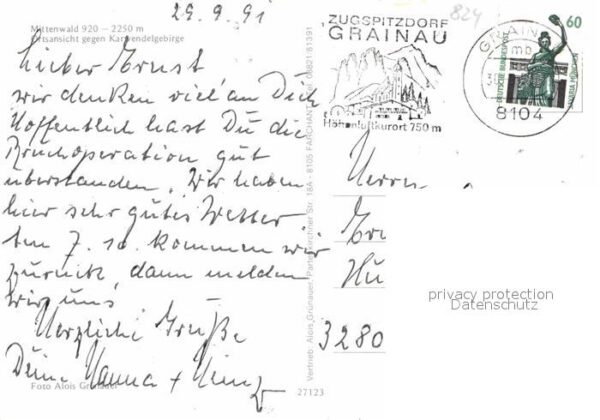 29.9.91
Mittenwald 920 - 2250 m
Ortsansicht gegen Karwendelgebirge
Lieber Ernst
wir denken viel an Dich
Hoffentlich hast Du die
Bruchoperation gut
überstanden. Wir haben
hier sehr gutes Wetter
Am 7.10. kommen wir
zurück, dann melden
wir uns
Herzliche Grüße
Deine Hanna + Heinz
Foto Alois Grünauer
Vertrieb: Alois Grünauer, Partenkirchner Str. 18A - 8105 FARCHANT, 08821/61391
27123
824
ZUGSPITZDORF
GRAINAU
Höhenluftkurort 750 m
GRAIN
mb
8104
60
DEUTSCHE BUNDESPOST
BAVARIA MÜNCHEN
Herrn
Er
Hu
3280
privacy protection
Datenschutz